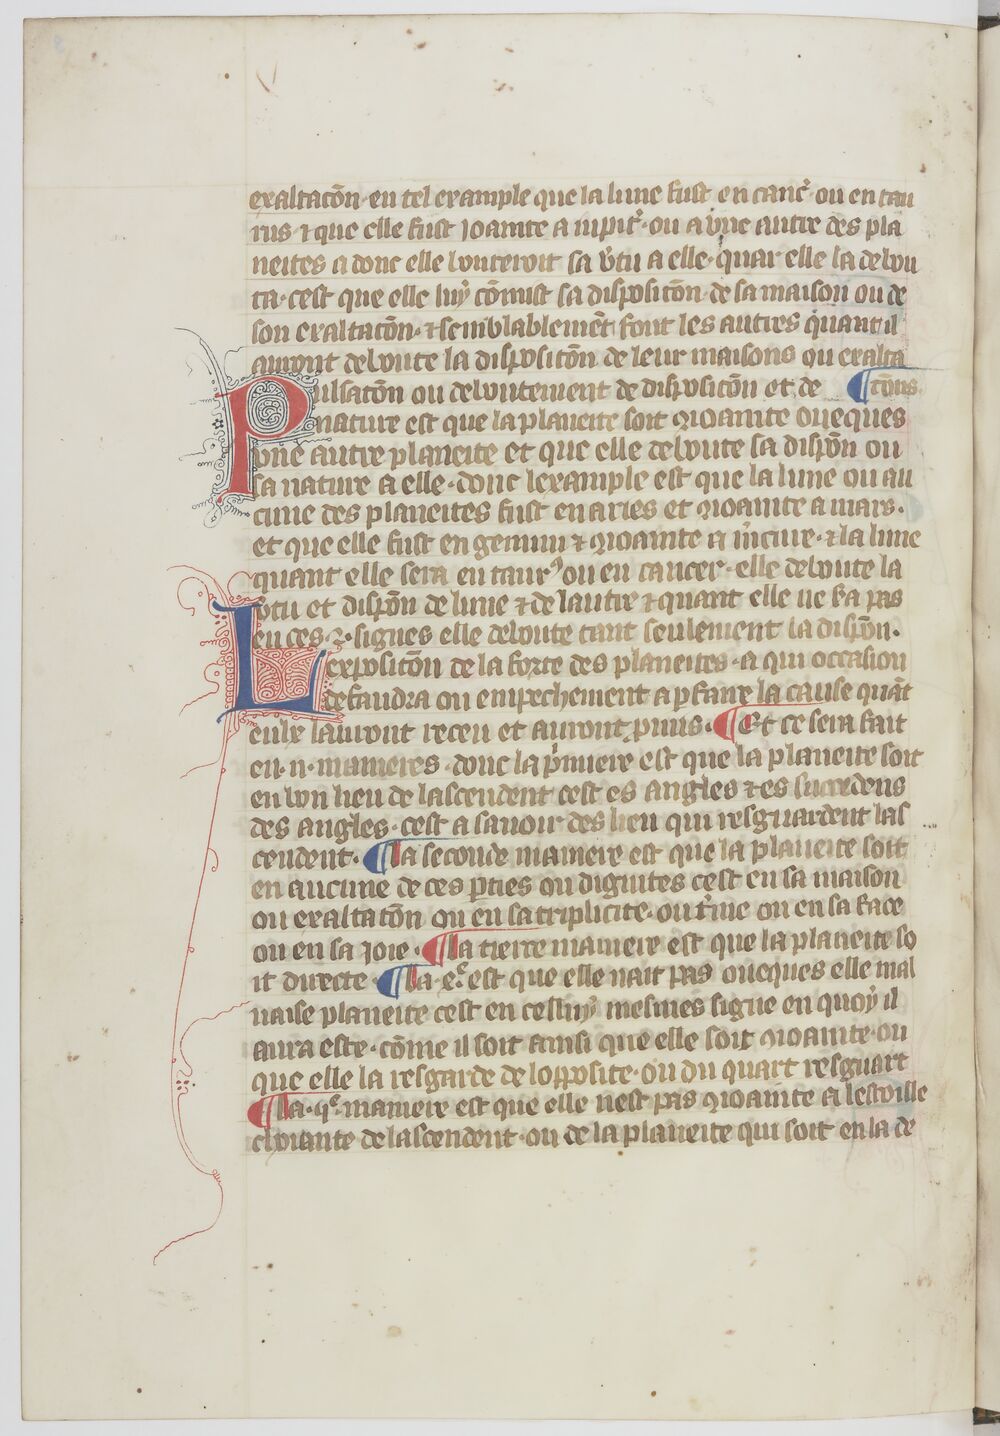 exaltacõn · en tel exemple que la lune fust en canc̉ · ou en tau
rus · ⁊ que elle fust ioainte a iupit̉ · ou a vne autre des pla
neites adonc elle bouteroit sa v̉tu a elle · quar elle la debou
ta · cest que elle luy cõmist sa disposicõn · de sa maison ou de
son exaltacõn · ⁊ semblablemẽt font les autres quant il
auront deboute la disposicõn de leur maisons ou exalta
¶ cõns ·
Pulsacõn ou deboutement de disposicõn et de
nature est que la planeite soit ioainte oueques
vne autre planeite et que elle deboute sa dispõn ou
sa nature a elle · donc lexample est que la lune ou au
cune des planeites fust en aries et ioainte a mars ·
et que elle fust en gemini ⁊ ioainte a m̉cure · ⁊ la lune
quant elle sera en taurꝰ ou en cancer · elle deboute la
v̉tu et dispõn de lune ⁊ de lautre ⁊ quant elle ne fa pas
en ces · 2 · signes elle deboute tant seulement la dispõn ·
Lexposicõn de la force des planeites · a qui occasion
defaudra ou empechement a ꝑfaire la cause quãt
eulx lauront receu et auront ꝓmis · ¶ Et ce sera fait
en · 11 · manieres · donc la p̉miere est que la planeite soit
en bon lieu de lascendent cest es angles ⁊ es succedens
des angles · cest a sauoir des lieu qui resguardent las
cendent · ¶ La seconde maniere est que la planeite soit
en aucune de ces ꝑties ou dignites cest en sa maison
ou exaltacõn ou en sa triplicite · ou t̉me ou en sa face
ou en sa ioie · ¶ la tierce maniere est que la planeite so
it directe · ¶ La · 4ͤ · est que elle nait pas oueques elle mal
uaise planeite cest en cestuy mesmes signe en quoy il
aura este · cõme il soit ainsi que elle soit ioainte · ou
que elle la resgarde de loꝑposite · ou du quart resguart
¶ la · qͤ · maniere est que elle nest pas ioainte a lestoille
cheiante de lascendent · ou de la planeite qui soit en la de